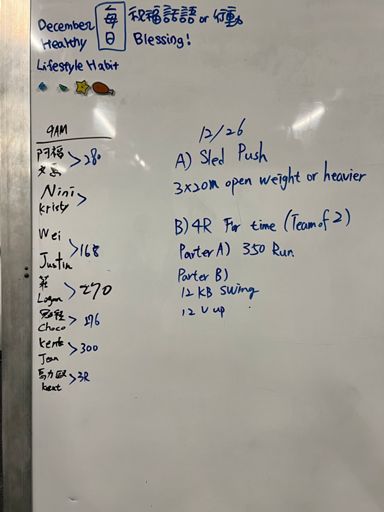 December 每日 祝福話語 or 行動
Healthy Blessing!
Lifestyle Habit
9AM
阿福
>280
Nini
Kristy >
Wei
Justin >168
Logan >270
Choco > 176
Kent
Jean >300
Kent >3R
12/26
A) Sled Push
3x20m open weight or heavier
B) 4R For time (Team of 2)
Parter A) 350 Run
Parter B)
12 KB Swing
12 V up